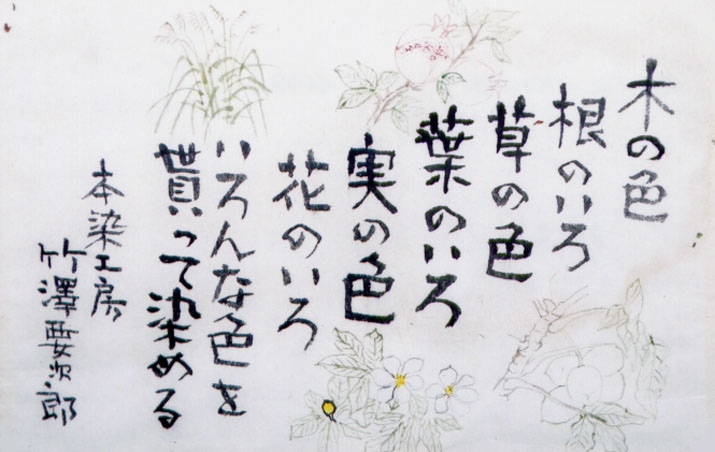 木の色
根のいろ
草の色
葉のいろ
実の色
花のいろ
いろんな色を
貰って染める
本染工房
竹澤要次郎